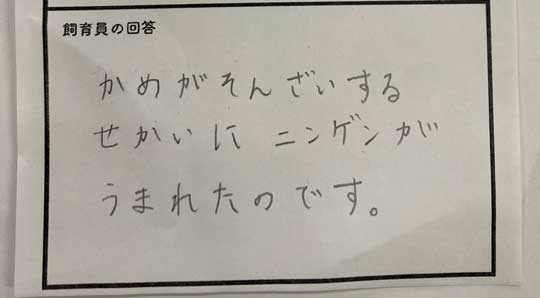 飼育員の回答
かめがそんざいする
せかいに ニンゲンが
うまれたのです。